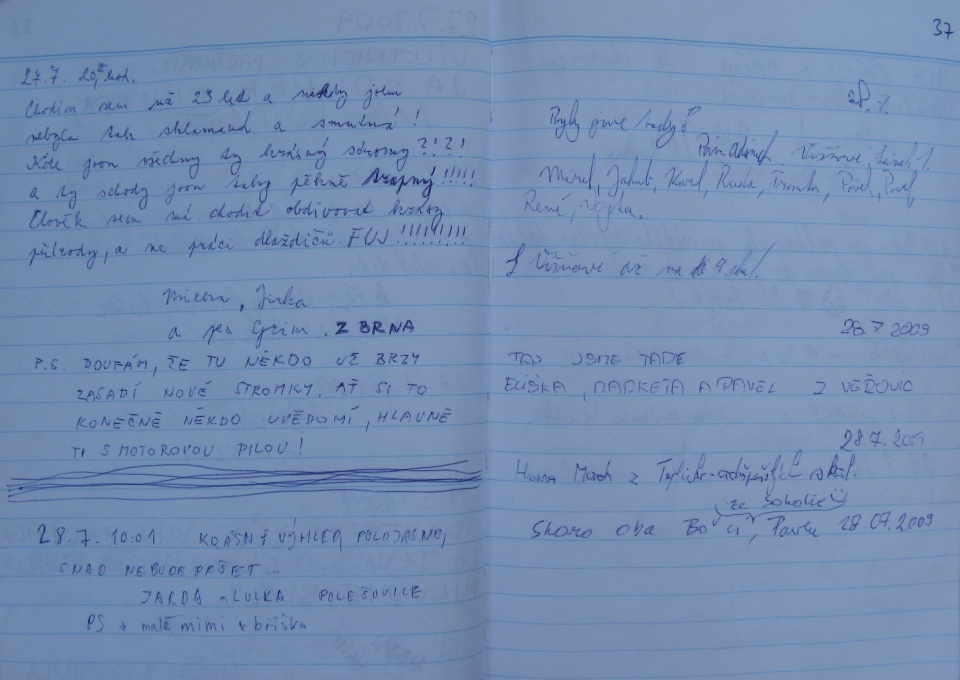 27.7. 20,15 hod.
Chodím sem už 23 let a nikdy jsem
nebyla tak zklamaná a smutná!
Kde jsou všechny ty krásný stromy?!?!
a ty schody jsou taky pěkně trapný!!!!!
Člověk sem má chodit obdivovat krásy
přírody, a ne práci dlaždičů. FUJ!!!!!!!!!
Jirka
a pes Grim. Z BRNA
P.S. DOUFÁM, ŽE TU NĚKDO UŽ BRZY
ZASADÍ NOVÉ STROMKY. AŤ SI TO
KONEČNĚ NĚKDO UVĚDOMÍ, HLAVNĚ
TI S MOTOROVOU PILOU!
28.7. 10:01 KRÁSNÝ VÝHLED, POLOJASNO,
SNAD NEBUDE PRŠET...
JARDA a LULKA
PS + malé mimi v bříšku
37
28.7.
Byly jsme tady!
Mirek, Jakub, Karel, Ruda, Franta, Pavel, Pavel,
René,
28.7 2009
TAD JSME TADE
ELIŠKA, MARKÉTA A PAVEL Z VĚŘOVIC
28.7.
z Teplicko-adršpašských skal.
ze Sokolče
Skoro oba Bo ci, Pavla 28.07.2009